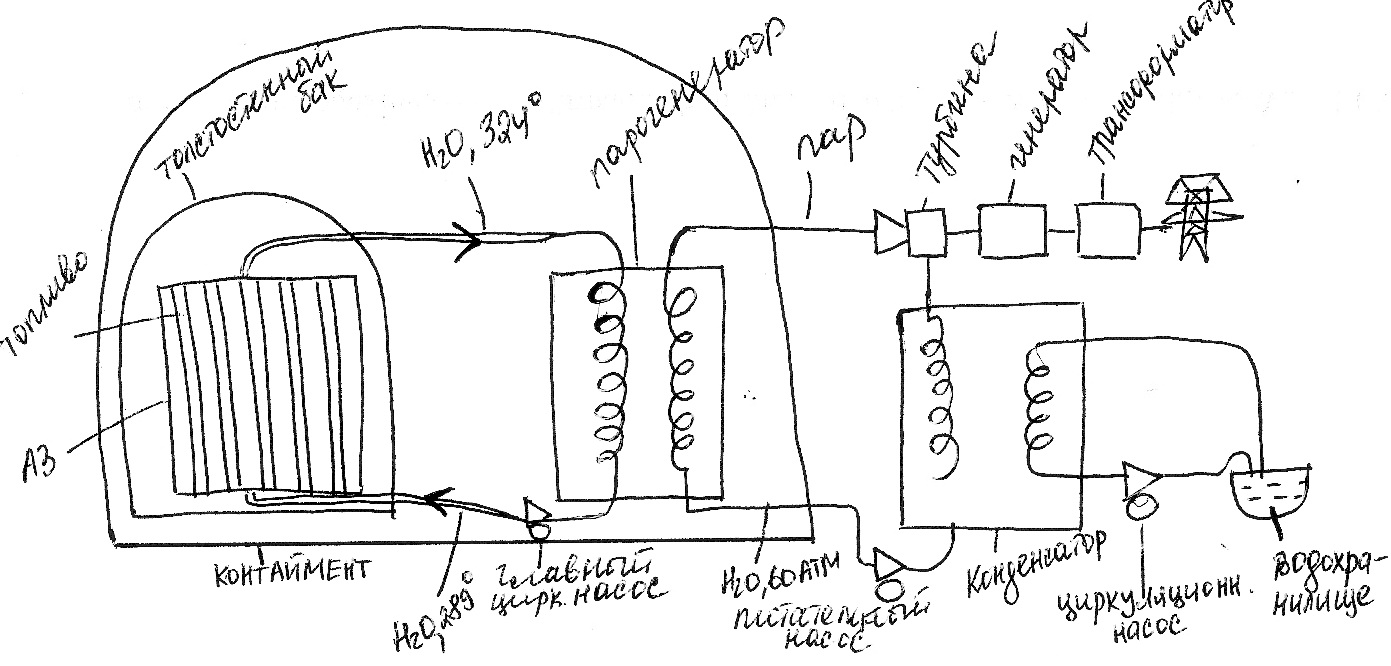 толстостенный
бак
H₂O, 324°
парогенератор
пар
турбина
генератор
трансформатор
топливо
АЗ
контаймент
H₂O, 289°
главный
цирк. насос
H₂O, 60 АТМ
питательный
насос
конденсатор
циркуляционн.
насос
водохра-
нилище